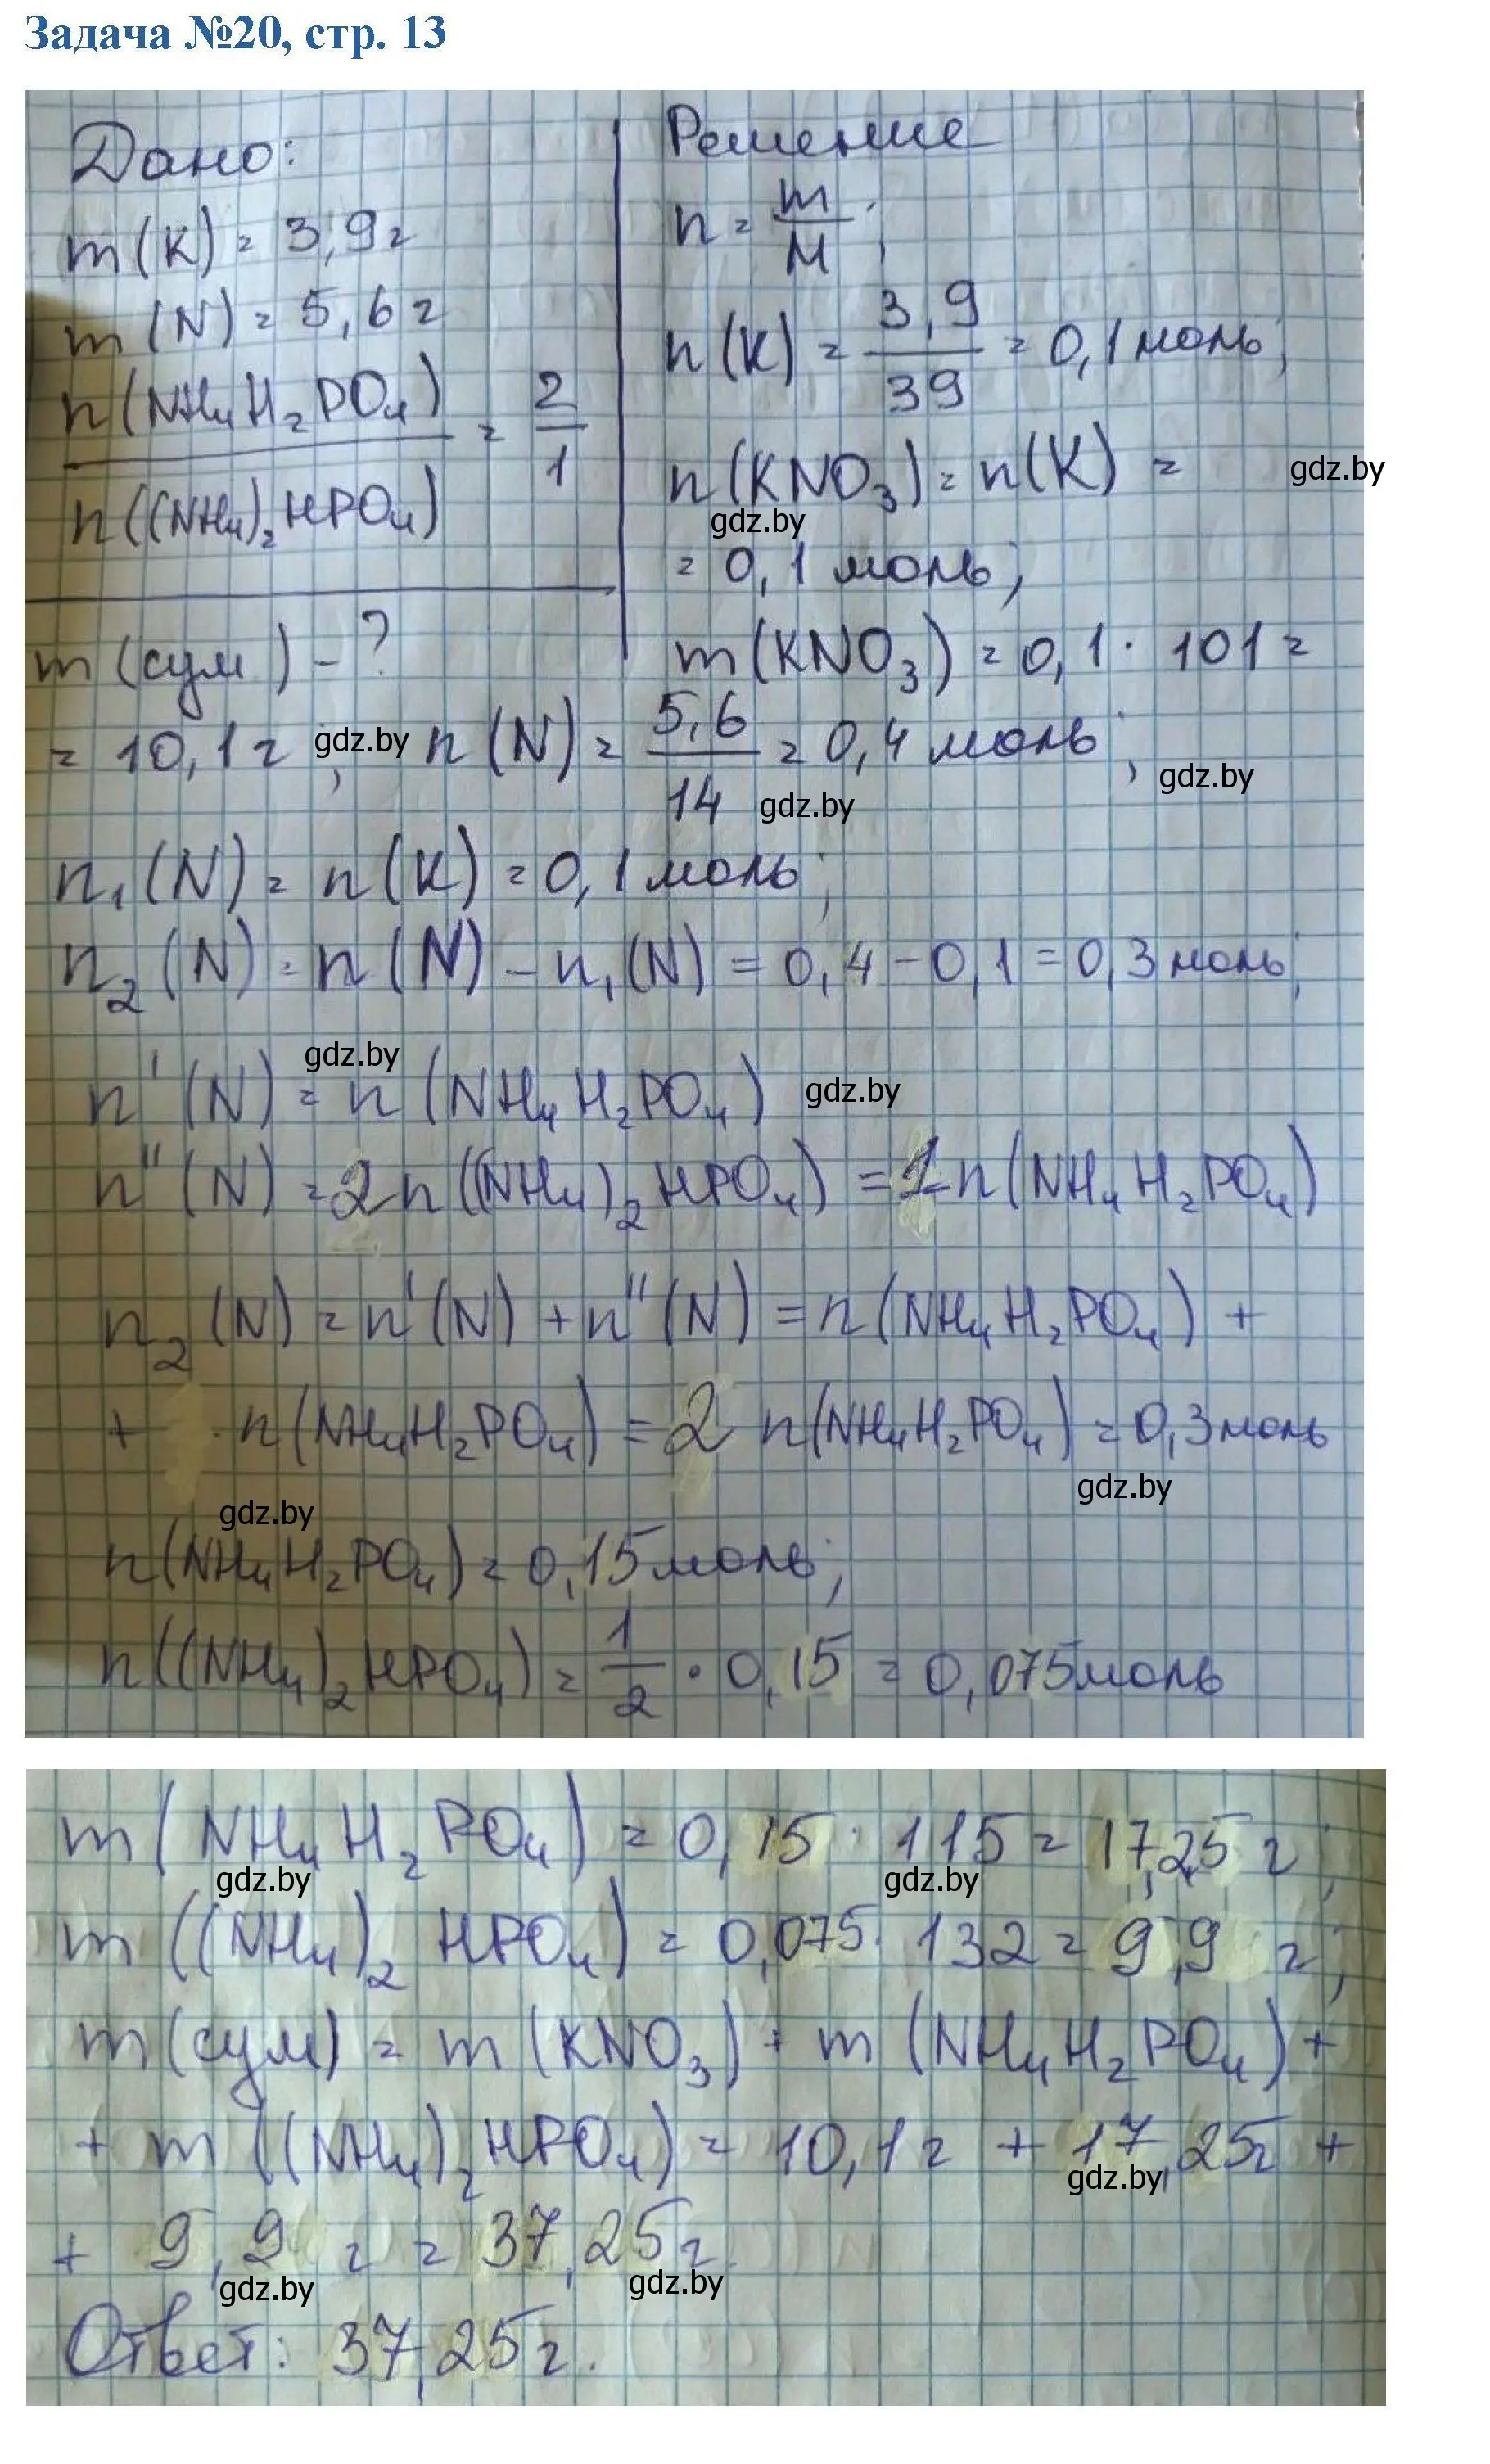 Задача №20, стр. 13
Дано:
m(K) = 3,9 г
m(N) = 5,6 г
n(NH₄H₂PO₄)
n((NH₄)₂HPO₄)
= 2/1
m(сум) - ?
Решение
n = m/M;
n(K) = 3,9/39 = 0,1 моль;
n(KNO₃) = n(K) =
= 0,1 моль;
m(KNO₃) = 0,1 · 101 =
= 10,1 г; n(N) = 5,6/14 = 0,4 моль;
n₁(N) = n(K) = 0,1 моль;
n₂(N) = n(N) - n₁(N) = 0,4 - 0,1 = 0,3 моль;
n'(N) = n(NH₄H₂PO₄)
n''(N) = 2n((NH₄)₂HPO₄) = 1n(NH₄H₂PO₄)
n₂(N) = n'(N) + n''(N) = n(NH₄H₂PO₄) +
+ · n(NH₄H₂PO₄) = 2 n(NH₄H₂PO₄) = 0,3 моль
n(NH₄H₂PO₄) = 0,15 моль;
n((NH₄)₂HPO₄) = 1/2 · 0,15 = 0,075 моль
m(NH₄H₂PO₄) = 0,15 · 115 = 17,25 г;
m((NH₄)₂HPO₄) = 0,075 · 132 = 9,9 г;
m(сум) = m(KNO₃) + m(NH₄H₂PO₄) +
+ m((NH₄)₂HPO₄) = 10,1 г + 17,25 г +
+ 9,9 г = 37,25 г.
Ответ: 37,25 г.
gdz.by
gdz.by
gdz.by
gdz.by
gdz.by
gdz.by
gdz.by
gdz.by
gdz.by
gdz.by
gdz.by
gdz.by
gdz.by
gdz.by